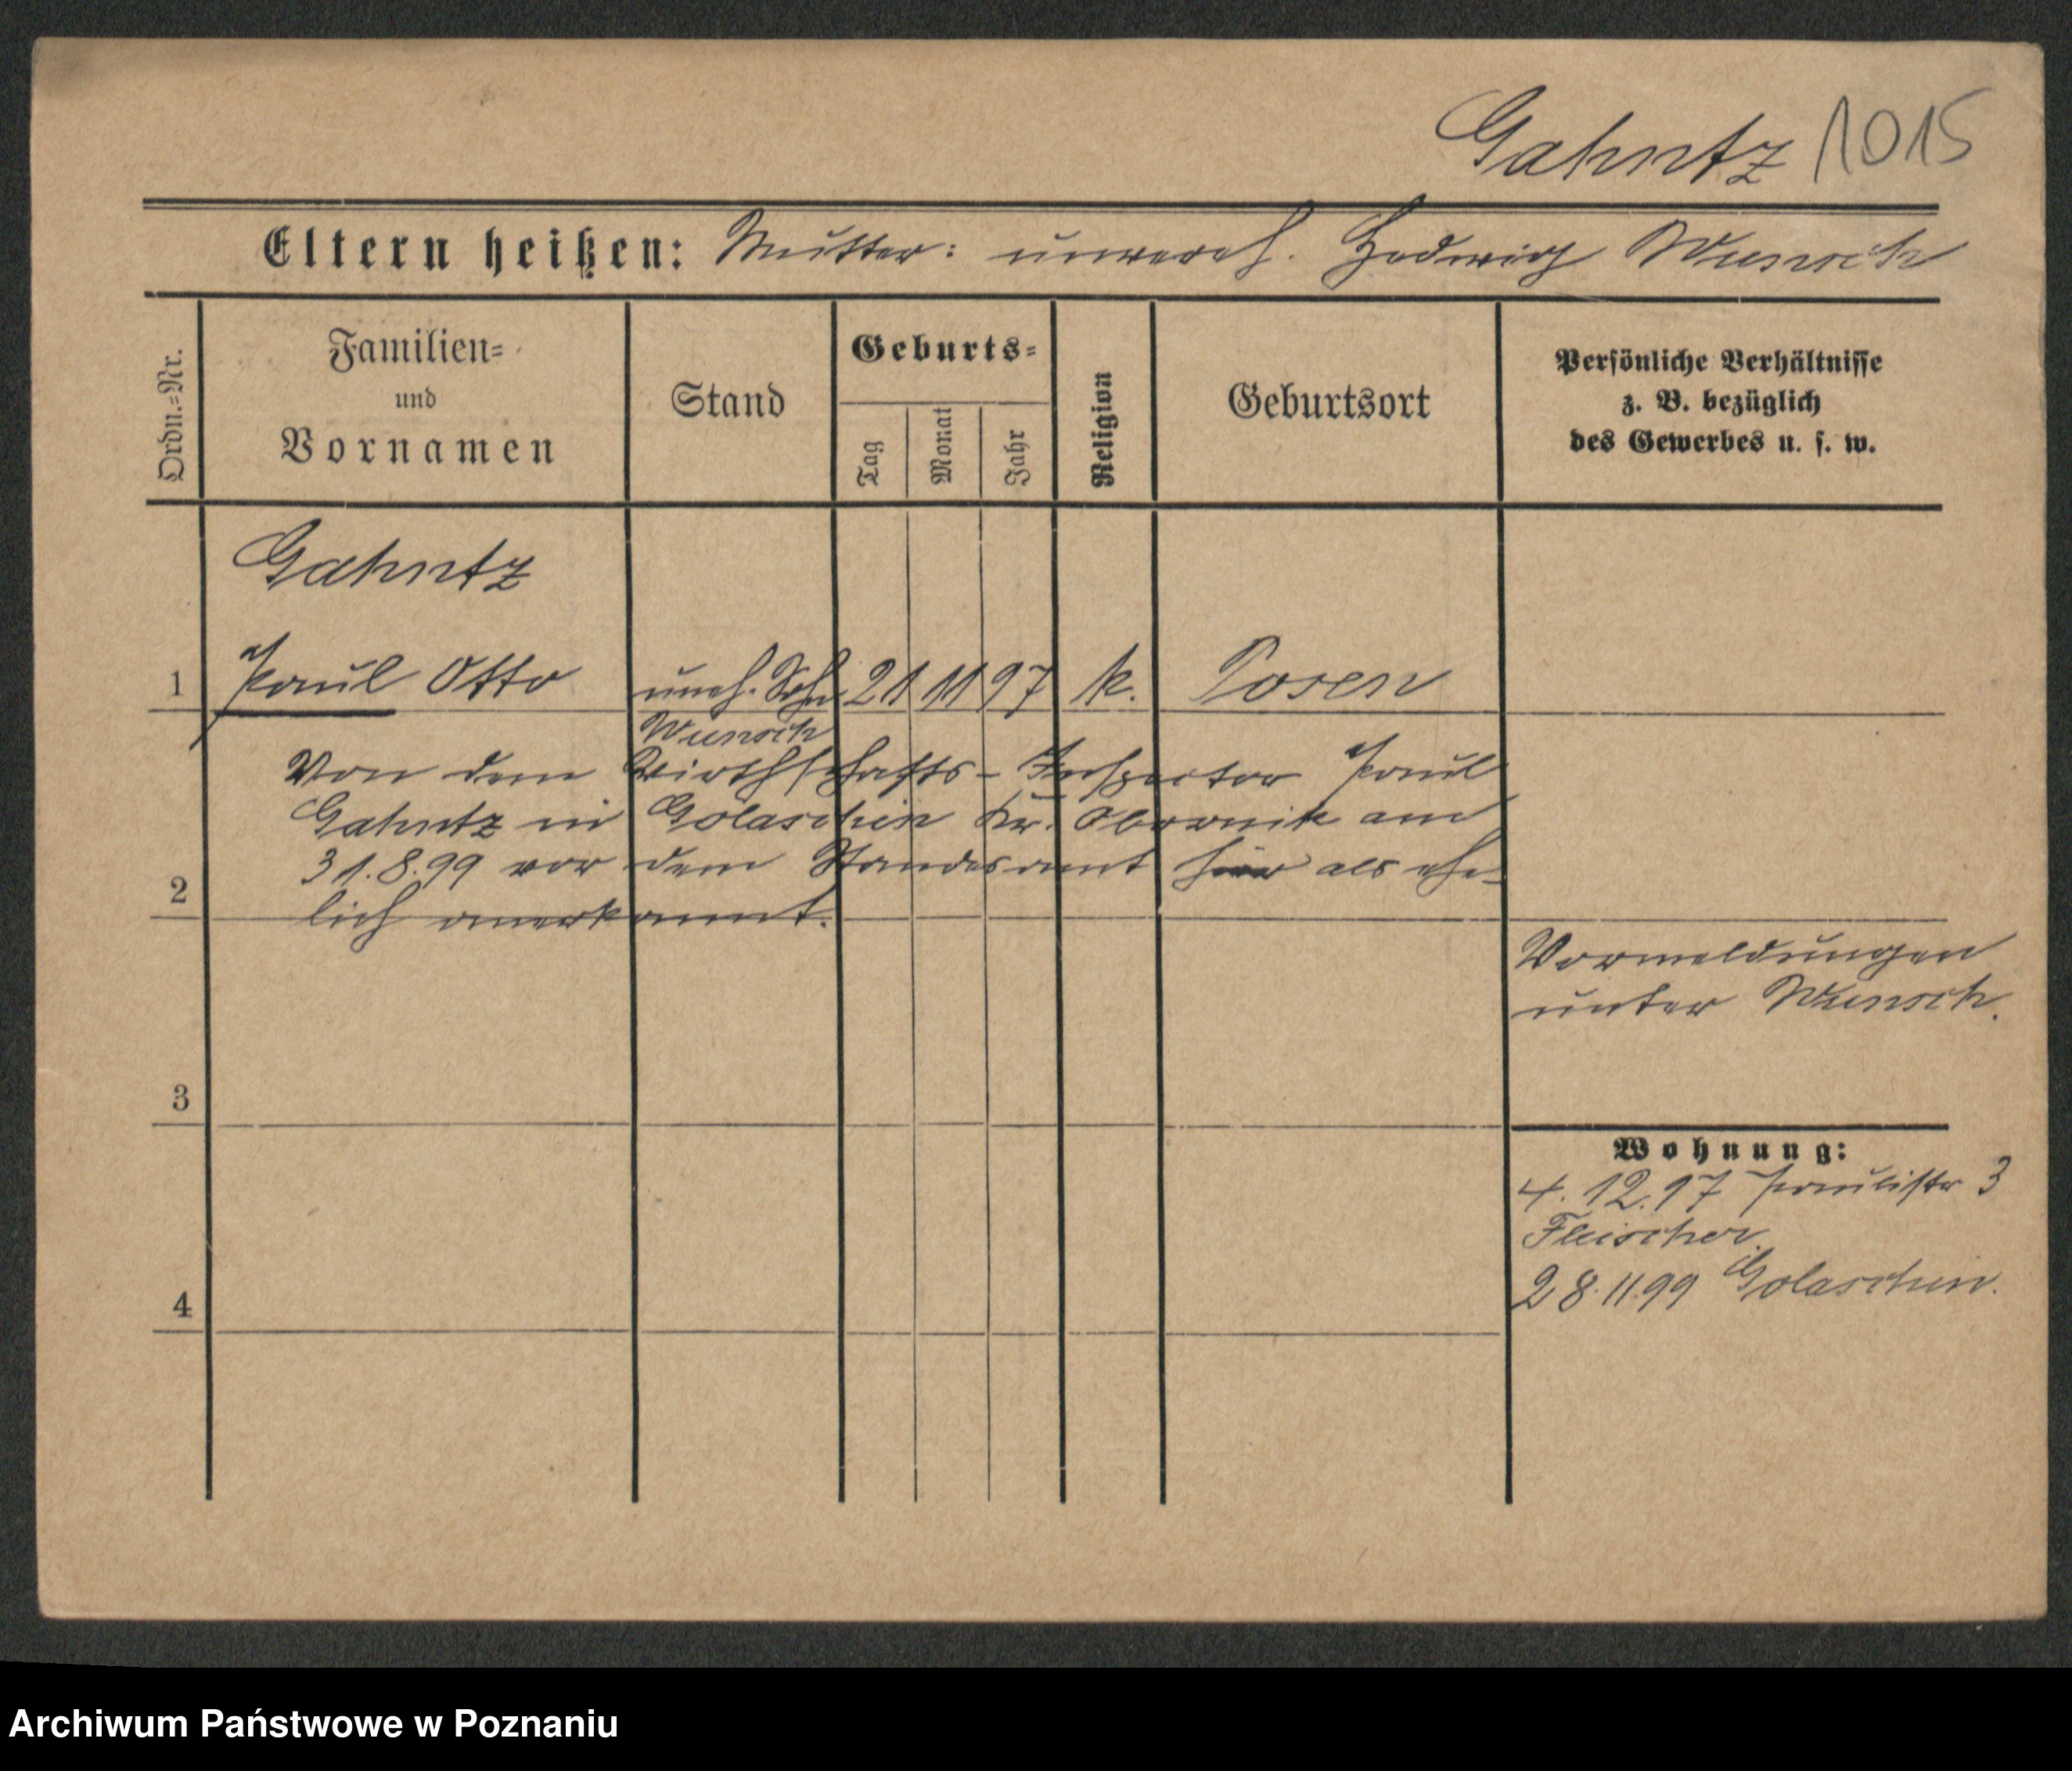 Gahntz 1015
Eltern heißen: Mutter: unvereh. Hedwig Wunsch
Ordn.=Nr.
Familien=
und
Vornamen
Stand
Geburts=
Tag
Monat
Jahr
Religion
Geburtsort
Persönliche Verhältnisse
z. B. bezüglich
des Gewerbes u. s. w.
Gahntz
1 Paul Otto uneh. Sohn 21 11 97 k. Posen
Wunsch
Von dem Wirthschafts-Inspector Paul
Gahntz in Golaschin Kr. Obornik am
31.8.99 vor dem Standesamt hier als ehe-
2
lich anerkannt.
Vormeldungen
unter Wunsch.
3
Wohnung:
4. 12. 97 Paulistr 3
Fleischer.
28.11.99 Golaschin.
4
Archiwum Państwowe w Poznaniu